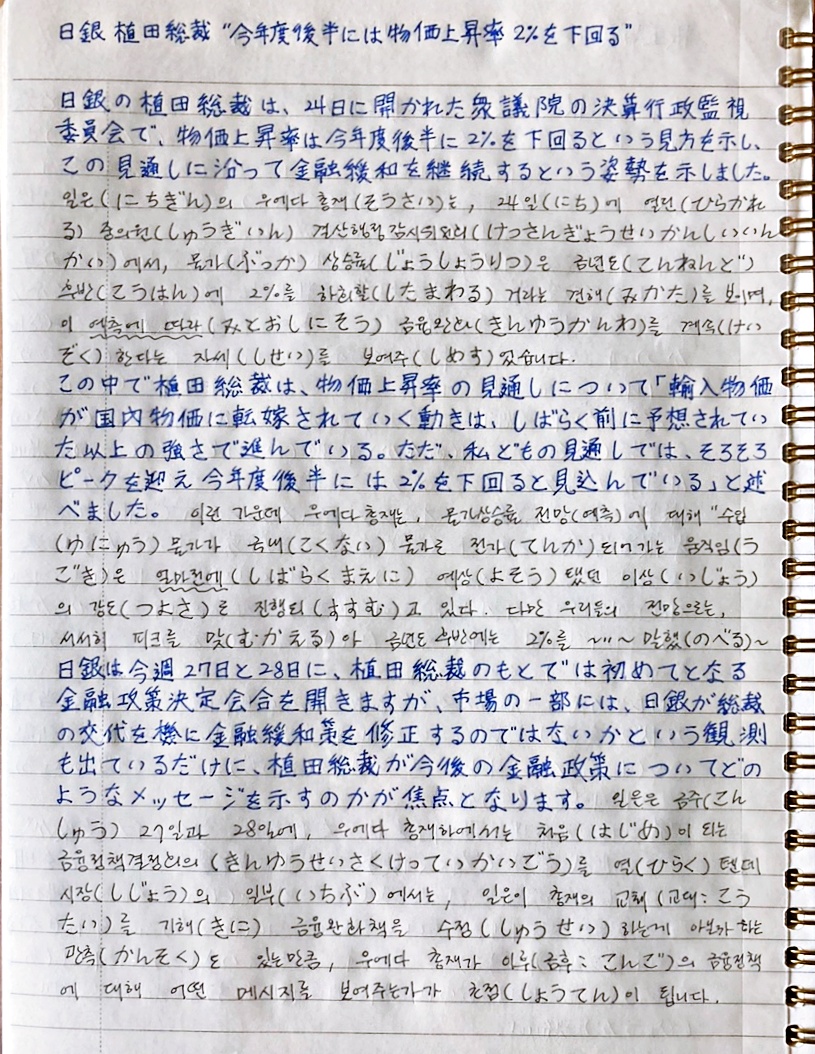 日銀 植田総裁 “今年度後半には物価上昇率 2%を下回る”
日銀の植田総裁は、24日に開かれた衆議院の決算行政監視
委員会で、物価上昇率は今年度後半に2%を下回るという見方を示し、
この見通しに沿って金融緩和を継続するという姿勢を示しました。
일은(にちぎん)의 우에다 총재(そうさい)는, 24일(にち)에 열린(ひらかれ
る) 중의원(しゅうぎいん) 결산행정감시위원회(けっさんぎょうせいかんしいいん
かい)에서, 물가(ぶっか) 상승률(じょうしょうりつ)은 금년도(こんねんど)
후반(こうはん)에 2%를 하회할(したまわる) 거라는 견해(みかた)를 보이며,
이 예측에 따라(みとおしにそう) 금융완화(きんゆうかんわ)를 계속(けい
ぞく) 한다는 자세(しせい)를 보여주(しめす)었습니다.
この中で植田総裁は、物価上昇率の見通しについて「輸入物価
が国内物価に転嫁されていく動きは、しばらく前に予想されてい
た以上の強さで進んでいる。ただ、私どもの見通しでは、そろそろ
ピークを迎え今年度後半には2%を下回ると見込んでいる」と述
べました。 이런 가운데 우에다 총재는, 물가상승률 전망(예측)에 대해 “수입
(ゆにゅう) 물가가 국내(こくない) 물가로 전가(てんか)되어가는 움직임(う
ごき)은 얼마전에(しばらくまえに) 예상(よそう)됐던 이상(いじょう)
의 강도(つよさ)로 진행되(すすむ)고 있다. 다만 우리들의 전망으로는,
서서히 피크를 맞(むかえる)아 금년도 후반에는 2%를 ~〃~ 말했(のべる)~
日銀は今週27日と28日に、植田総裁のもとでは初めてとなる
金融政策決定会合を開きますが、市場の一部には、日銀が総裁
の交代を機に金融緩和策を修正するのではないかという観測
も出ているだけに、植田総裁が今後の金融政策についてどの
ようなメッセージを示すのかが焦点となります。 일은은 금주(こん
しゅう) 27일과 28일에, 우에다 총재하에서는 처음(はじめ)이 되는
금융정책결정회의(きんゆうせいさくけっていかいごう)를 열(ひらく)텐데
시장(しじょう)의 일부(いちぶ)에서는, 일은이 총재의 교체(교대: こう
たい)를 기해(きに) 금융완화책을 수정(しゅうせい)하는게 아닐까 하는
관측(かんそく)도 있는만큼, 우에다 총재가 이후(금후: こんご)의 금융정책
에 대해 어떤 메시지를 보여주는가가 초점(しょうてん)이 됩니다.